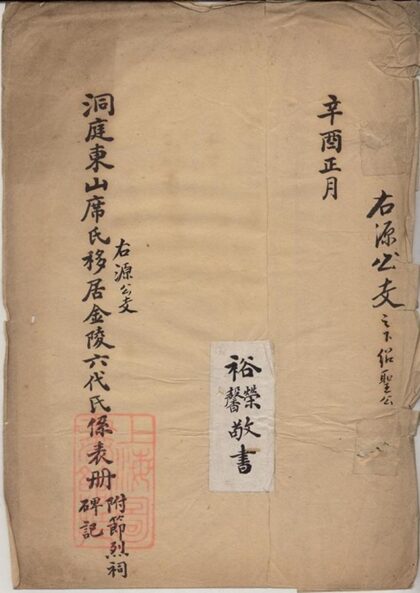 右源公支之下紹聖公
辛酉正月
裕榮馨敬書
右源公支
洞庭東山席氏移居金陵六代氏係表册附節烈祠碑記